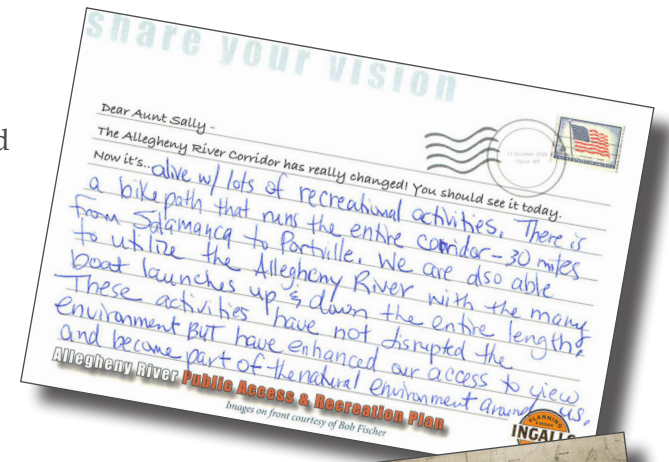 share your vision
d
Dear Aunt Sally -
The Allegheny River Corridor has really changed! You should see it today.
Now it's... alive w/ lots of recreational activities. There is
a bike path that runs the entire corridor - 30 miles
from Salamanca to Portville. We are also able
to utilize the Allegheny River with the many
boat launches up & down the entire length.
These activities have not disrupted the
environment BUT have enhanced our access to view
and become part of the natural environment around us.
Allegheny River Public Access & Recreation Plan
Images on front courtesy of Bob Fischer
PLANNING
INGALLS